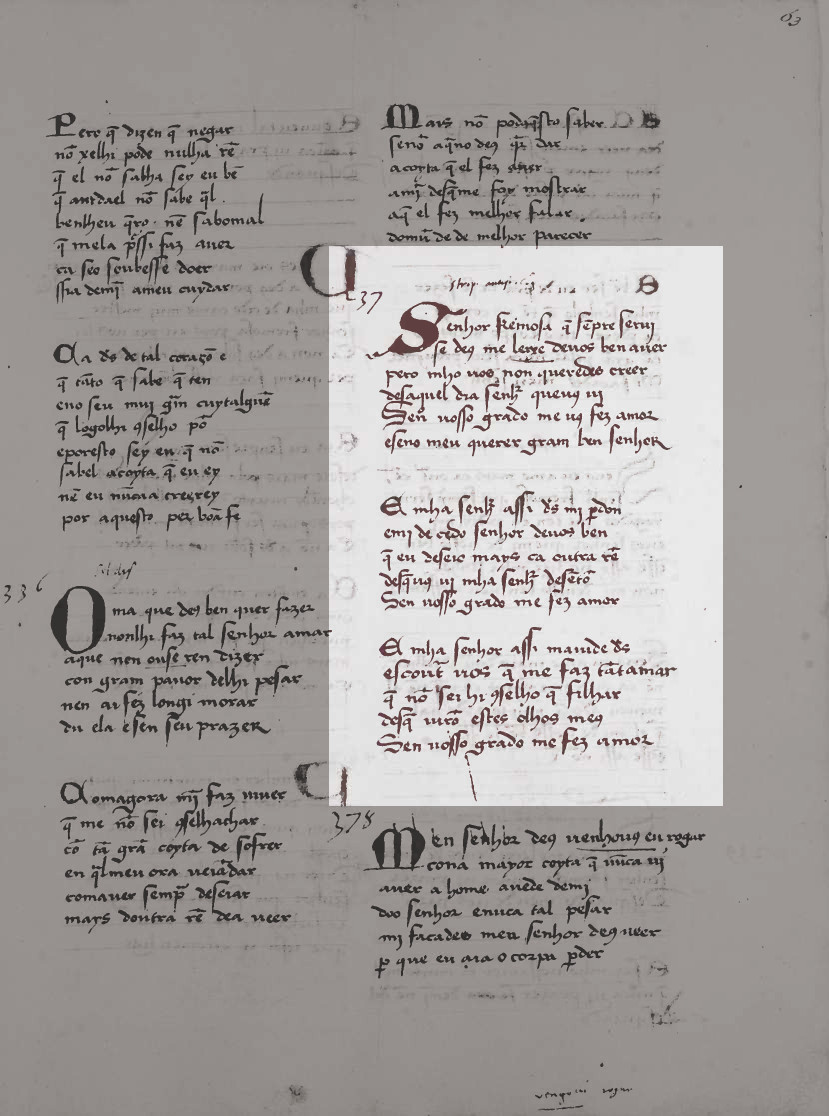 63
Pero q̄ dizen q̄ negar
nō xelhi pode nulha rē
q̄ el nō sabha sey eu bē
q̄ nō sabe
q̄ro nē sabomal
q̄ mela faz auer
ca seo soubesse doer
ameu cuydar
Ca d̄s de tal coraçō e
q̄ tāto q̄ sabe q̄ ten
eno seu mui grā
q̄ logolhi ꝯselho pō
eporesto sey eu q̄ nō
sabel acoyta q̄ eu ey
nē eu nūcia creerey
por aquesto per boā fe
336
Oma que deꝯ ben quer fazer
nonlhi faz tal senhor amar
aque non ouse ren dizer
con gram pauor delhi pesar
nen ar fez longi morar
du ela esen seu prazer
Comagora mī faz uiuer
q̄ me nō sei ꝯselhachar
cō tā grā coyta de sofrer
en
comauer semp̄ deseiar
mays doutra rē dea ueer
Mais nō saber
senō aq̄no deꝯ dar
acoyta q̄ el fez
foy mostrar
aq̄ el fez melhor falar
domū de de melhor parecer
37
Senhor fremosa q̄ sēpre serui
se deꝯ me leixe deuos ben auer
pero mho uos non queredes creer
desaquel dia senhʳ queuꝯ ui
Sen uosso grado me uꝯ fez amor
eseno meu querer gram ben senhor
E mha senhʳ assi d̄s mi ꝑdon
emi de cedo senhor deuos ben
q̄ eu deseio mays ca outra rē
desq̄uꝯ ui mha senhʳ
Sen uosso grado me fez amor
E mha senhor assi maiude d̄s
uos q̄ me faz tātamar
q̄ nō sei hi ꝯselho q̄ filhar
desq̄ uirō estes olhos meꝯ
Sen uosso grado me fez amor
378
Men senhor deꝯ uenhouꝯ eu rogar
cona mayor coyta q̄ nūca ui
auer a home auede demi
doo senhor enuca tal pesar
mi facades meu senhor deꝯ ueer
ꝑ que eu aia o corpa ꝑder